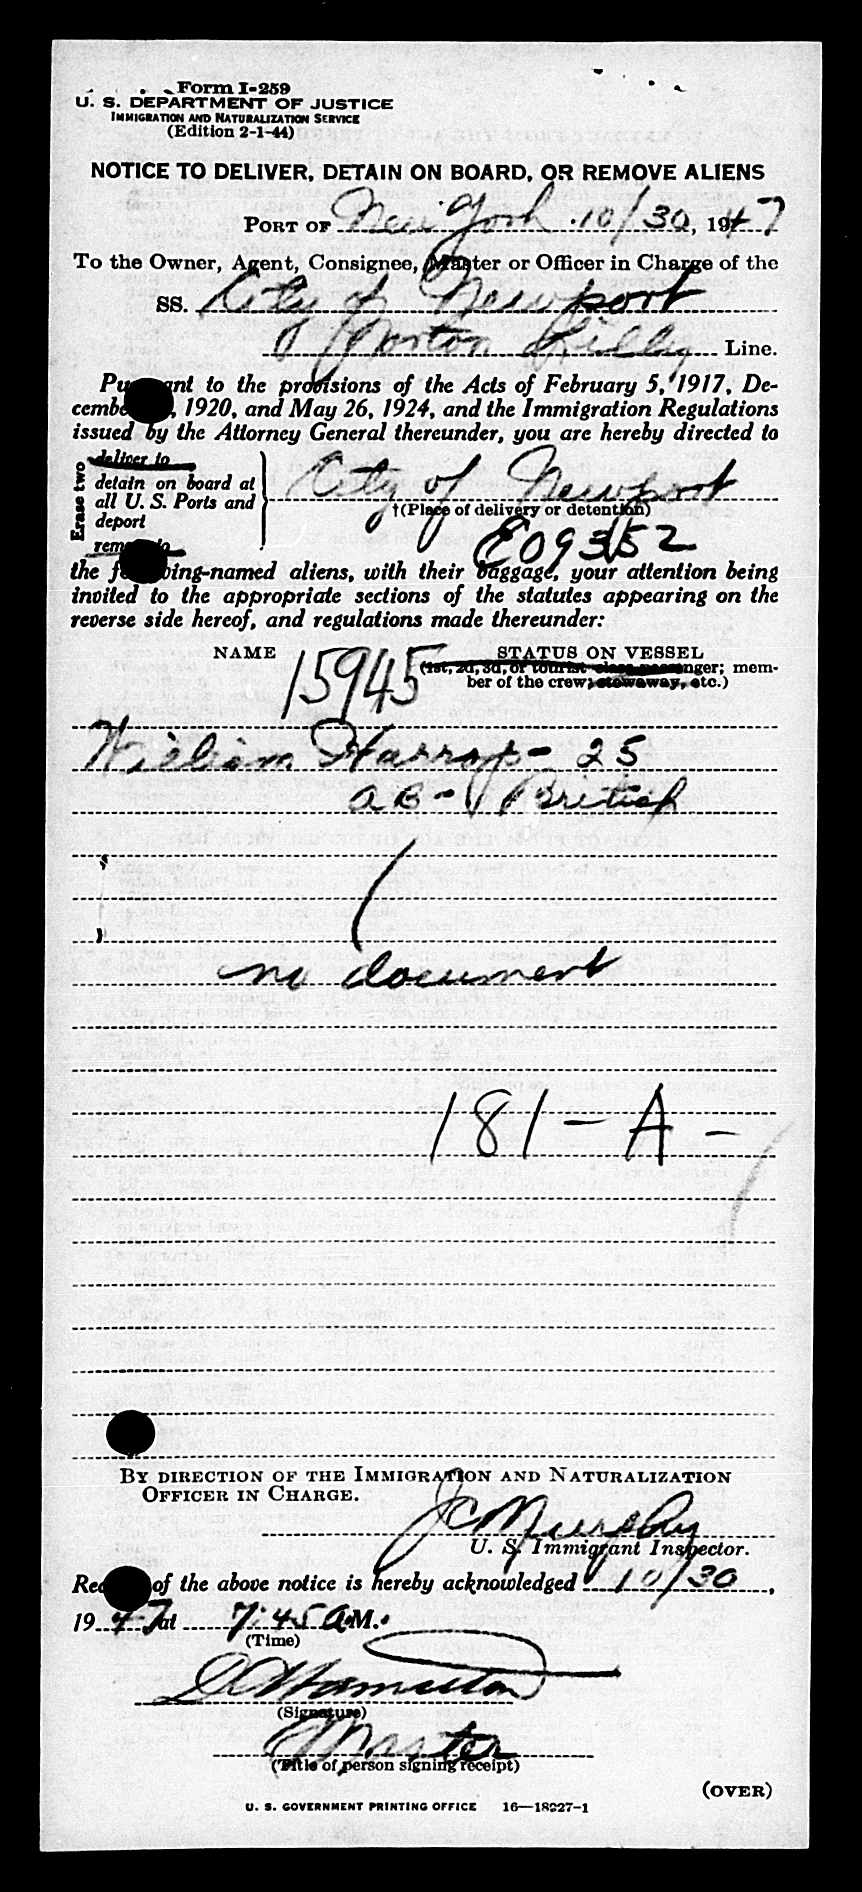 Form I-259
U. S. DEPARTMENT OF JUSTICE
IMMIGRATION AND NATURALIZATION SERVICE
(Edition 2-1-44)
NOTICE TO DELIVER, DETAIN ON BOARD, OR REMOVE ALIENS
PORT OF New York 10/30, 1947
To the Owner, Agent, Consignee, Master or Officer in Charge of the
SS. City of Newport
Norton Lilly Line.
Pu ant to the provisions of the Acts of February 5, 1917, De-
cembe , 1920, and May 26, 1924, and the Immigration Regulations
issued by the Attorney General thereunder, you are hereby directed to
Erase two
deliver to
detain on board at
all U. S. Ports and
deport
rem to
City of Newport
†(Place of delivery or detention)
E093552
the f wing-named aliens, with their baggage, your attention being
invited to the appropriate sections of the statutes appearing on the
reverse side hereof, and regulations made thereunder:
NAME 15945 STATUS ON VESSEL
(1st, 2d, 3d, or tourist class passenger; mem-
ber of the crew; stowaway, etc.)
William Harrop - 25
AB - British
no document
181 - A -
BY DIRECTION OF THE IMMIGRATION AND NATURALIZATION
OFFICER IN CHARGE.
U. S. Immigrant Inspector.
Rec of the above notice is hereby acknowledged 10/30,
1947 at 7:45 A.M.
(Time)
Hamilton
(Signature)
Master
(Title of person signing receipt)
(OVER)
U. S. GOVERNMENT PRINTING OFFICE 16—18227-1